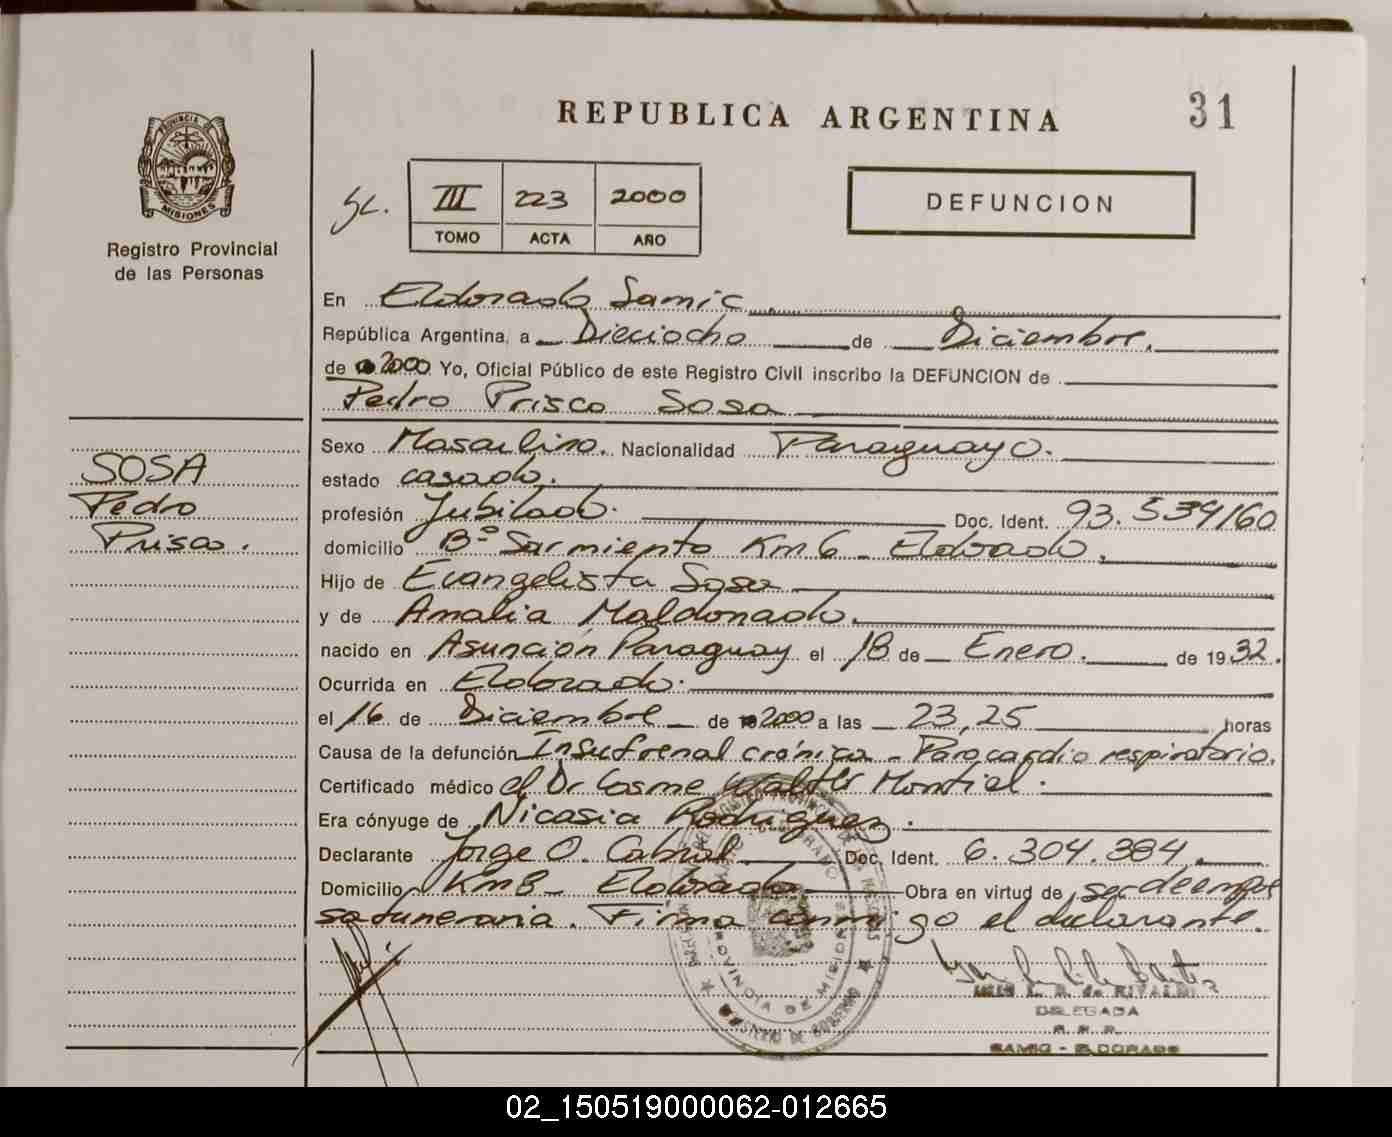 31
REPUBLICA ARGENTINA
PROVINCIA DE
MISIONES
Registro Provincial
de las Personas
III 223 2000
TOMO ACTA AÑO
DEFUNCION
En Eldorado Samic
República Argentina, a Dieciocho de Diciembre.
de 2000 Yo, Oficial Público de este Registro Civil inscribo la DEFUNCION de
Pedro Prisco Sosa
SOSA
Pedro
Prisco.
Sexo Masculino. Nacionalidad Paraguayo.
estado casado.
profesión Jubilado. Doc. Ident. 93.539160
domicilio Bº Sarmiento Km 6 - Eldorado.
Hijo de Evangelista Sosa
y de Amalia Maldonado.
nacido en Asunción Paraguay el 18 de Enero. de 1932.
Ocurrida en Eldorado.
el 16 de Diciembre de 2000 a las 23,25 horas
Causa de la defunción Insuf renal crónica - Paro cardio respiratorio.
Certificado médico el Dr Cosme Walter Montiel.
Era cónyuge de Nicasia Rodriguez.
Declarante Jorge O. Cabral Doc. Ident. 6.304.384.
Domicilio Km 8 - Eldorado Obra en virtud de ser de empre
sa funeraria. Firma conmigo el declarante.
PROVINCIA DE MISIONES
MINISTERIO DE GOBIERNO
L. R. de RIVALDI
DELEGADA
R. P. P.
SAMIC - ELDORADO
02_150519000062-012665